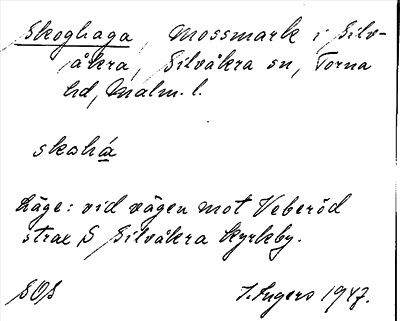 Skoghaga, mossmark i Silv-
åkra, Silvåkra sn, Torna
hd, Malm. l.
skahá
Läge: vid vägen mot Veberöd
strax S Silvåkra kyrkby.
SOS I. Ingers 1947.